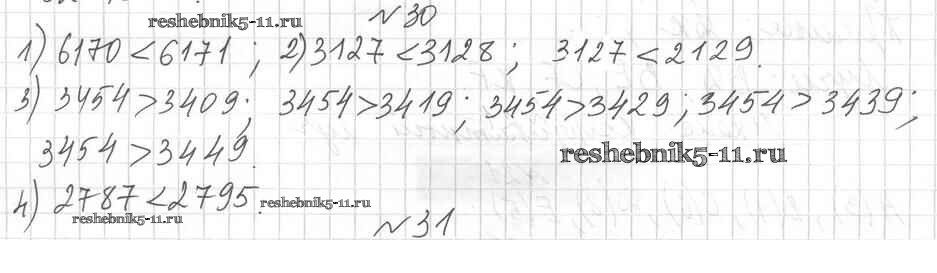 №30
reshebnik5-11.ru
1) 6170 < 6171 ; 2) 3127 < 3128 ; 3127 < 2129.
3) 3454 > 3409; 3454 > 3419; 3454 > 3429; 3454 > 3439;
3454 > 3449.
reshebnik5-11.ru
4) 2787 < 2795.
reshebnik5-11.ru
reshebnik5-11.ru
№31